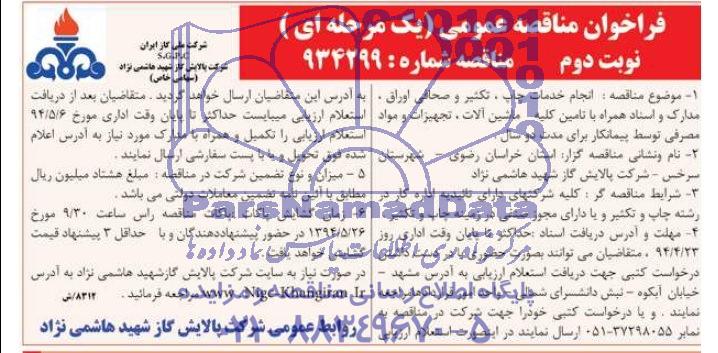 فراخوان مناقصه عمومی (یک مرحله ای)
نوبت دوم مناقصه شماره : ۹۳۴۲۹۹
شرکت ملی گاز ایران
S.G.P.C
شرکت پالایش گاز شهید هاشمی نژاد
(سهامی خاص)
۱- موضوع مناقصه : انجام خدمات چاپ ، تکثیر و صحافی اوراق ،
مدارک و اسناد همراه با تامین کلیه ماشین آلات ، تجهیزات و مواد
مصرفی توسط پیمانکار برای مدت دو سال
۲- نام ونشانی مناقصه گزار: استان خراسان رضوی – شهرستان
سرخس – شرکت پالایش گاز شهید هاشمی نژاد
۳- شرایط مناقصه گر : کلیه شرکتهای دارای تائیدیه اداره کار در
رشته چاپ و تکثیر و یا دارای مجوز صنفی در زمینه چاپ و تکثیر
۴- مهلت و آدرس دریافت اسناد :حداکثر تا پایان وقت اداری روز
۹۴/۴/۲۳ ، متقاضیان می توانند بصورت حضوری با در دست داشتن
درخواست کتبی جهت دریافت استعلام ارزیابی به آدرس مشهد –
خیابان آبکوه – نبش دانشسرای شمالی – واحد امور قراردادها مراجعه
نمایند . و یا درخواست کتبی خودرا جهت شرکت در مناقصه به
نمابر ۳۷۲۹۸۰۵۵-۰۵۱ ارسال نمایند در اینصورت استعلام ارزیابی
به آدرس این متقاضیان ارسال خواهد گردید . متقاضیان بعد از دریافت
استعلام ارزیابی میبایست حداکثر تا پایان وقت اداری مورخ ۹۴/۵/۶
استعلام ارزیابی را تکمیل و همراه با مدارک مورد نیاز به آدرس اعلام
شده فوق تحویل و یا با پست سفارشی ارسال نمایند .
۵ – میزان و نوع تضمین شرکت در مناقصه : مبلغ هشتاد میلیون ریال
مطابق با آئین نامه تضمین معاملات دولتی می باشد .
۶- زمان گشایش پاکات : پاکات مناقصه راس ساعت ۹/۳۰ مورخ
۱۳۹۴/۵/۲۶ در حضور پیشنهاددهندگان و با حداقل ۳ پیشنهاد قیمت
گشایش خواهد یافت .
در صورت نیاز به سایت شرکت پالایش گازشهید هاشمی نژاد به آدرس
www.Nigc-Khangiran.Ir مراجعه فرمائید . ۸۳۱۲/ش
روابط عمومی شرکت پالایش گاز شهید هاشمی نژاد
ParsNamadData
مرکز فرآوری اطلاعات پارس نماد داده ها
پایگاه اطلاع رسانی مناقصه و مزایده
۰۲۱-۸۸۳۴۹۶۷۰-۵